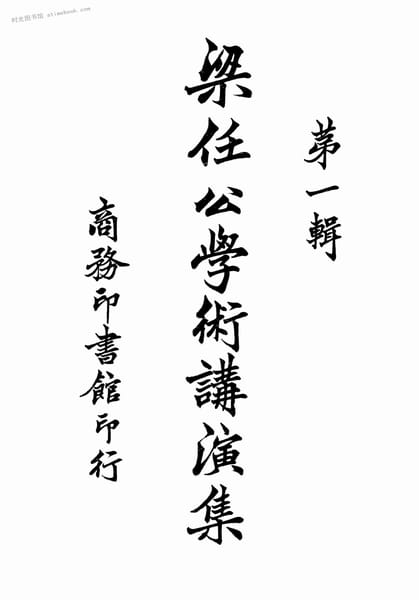 时光图书馆 atimebook.com
第一輯
梁任公學術講演集
商務印書館印行